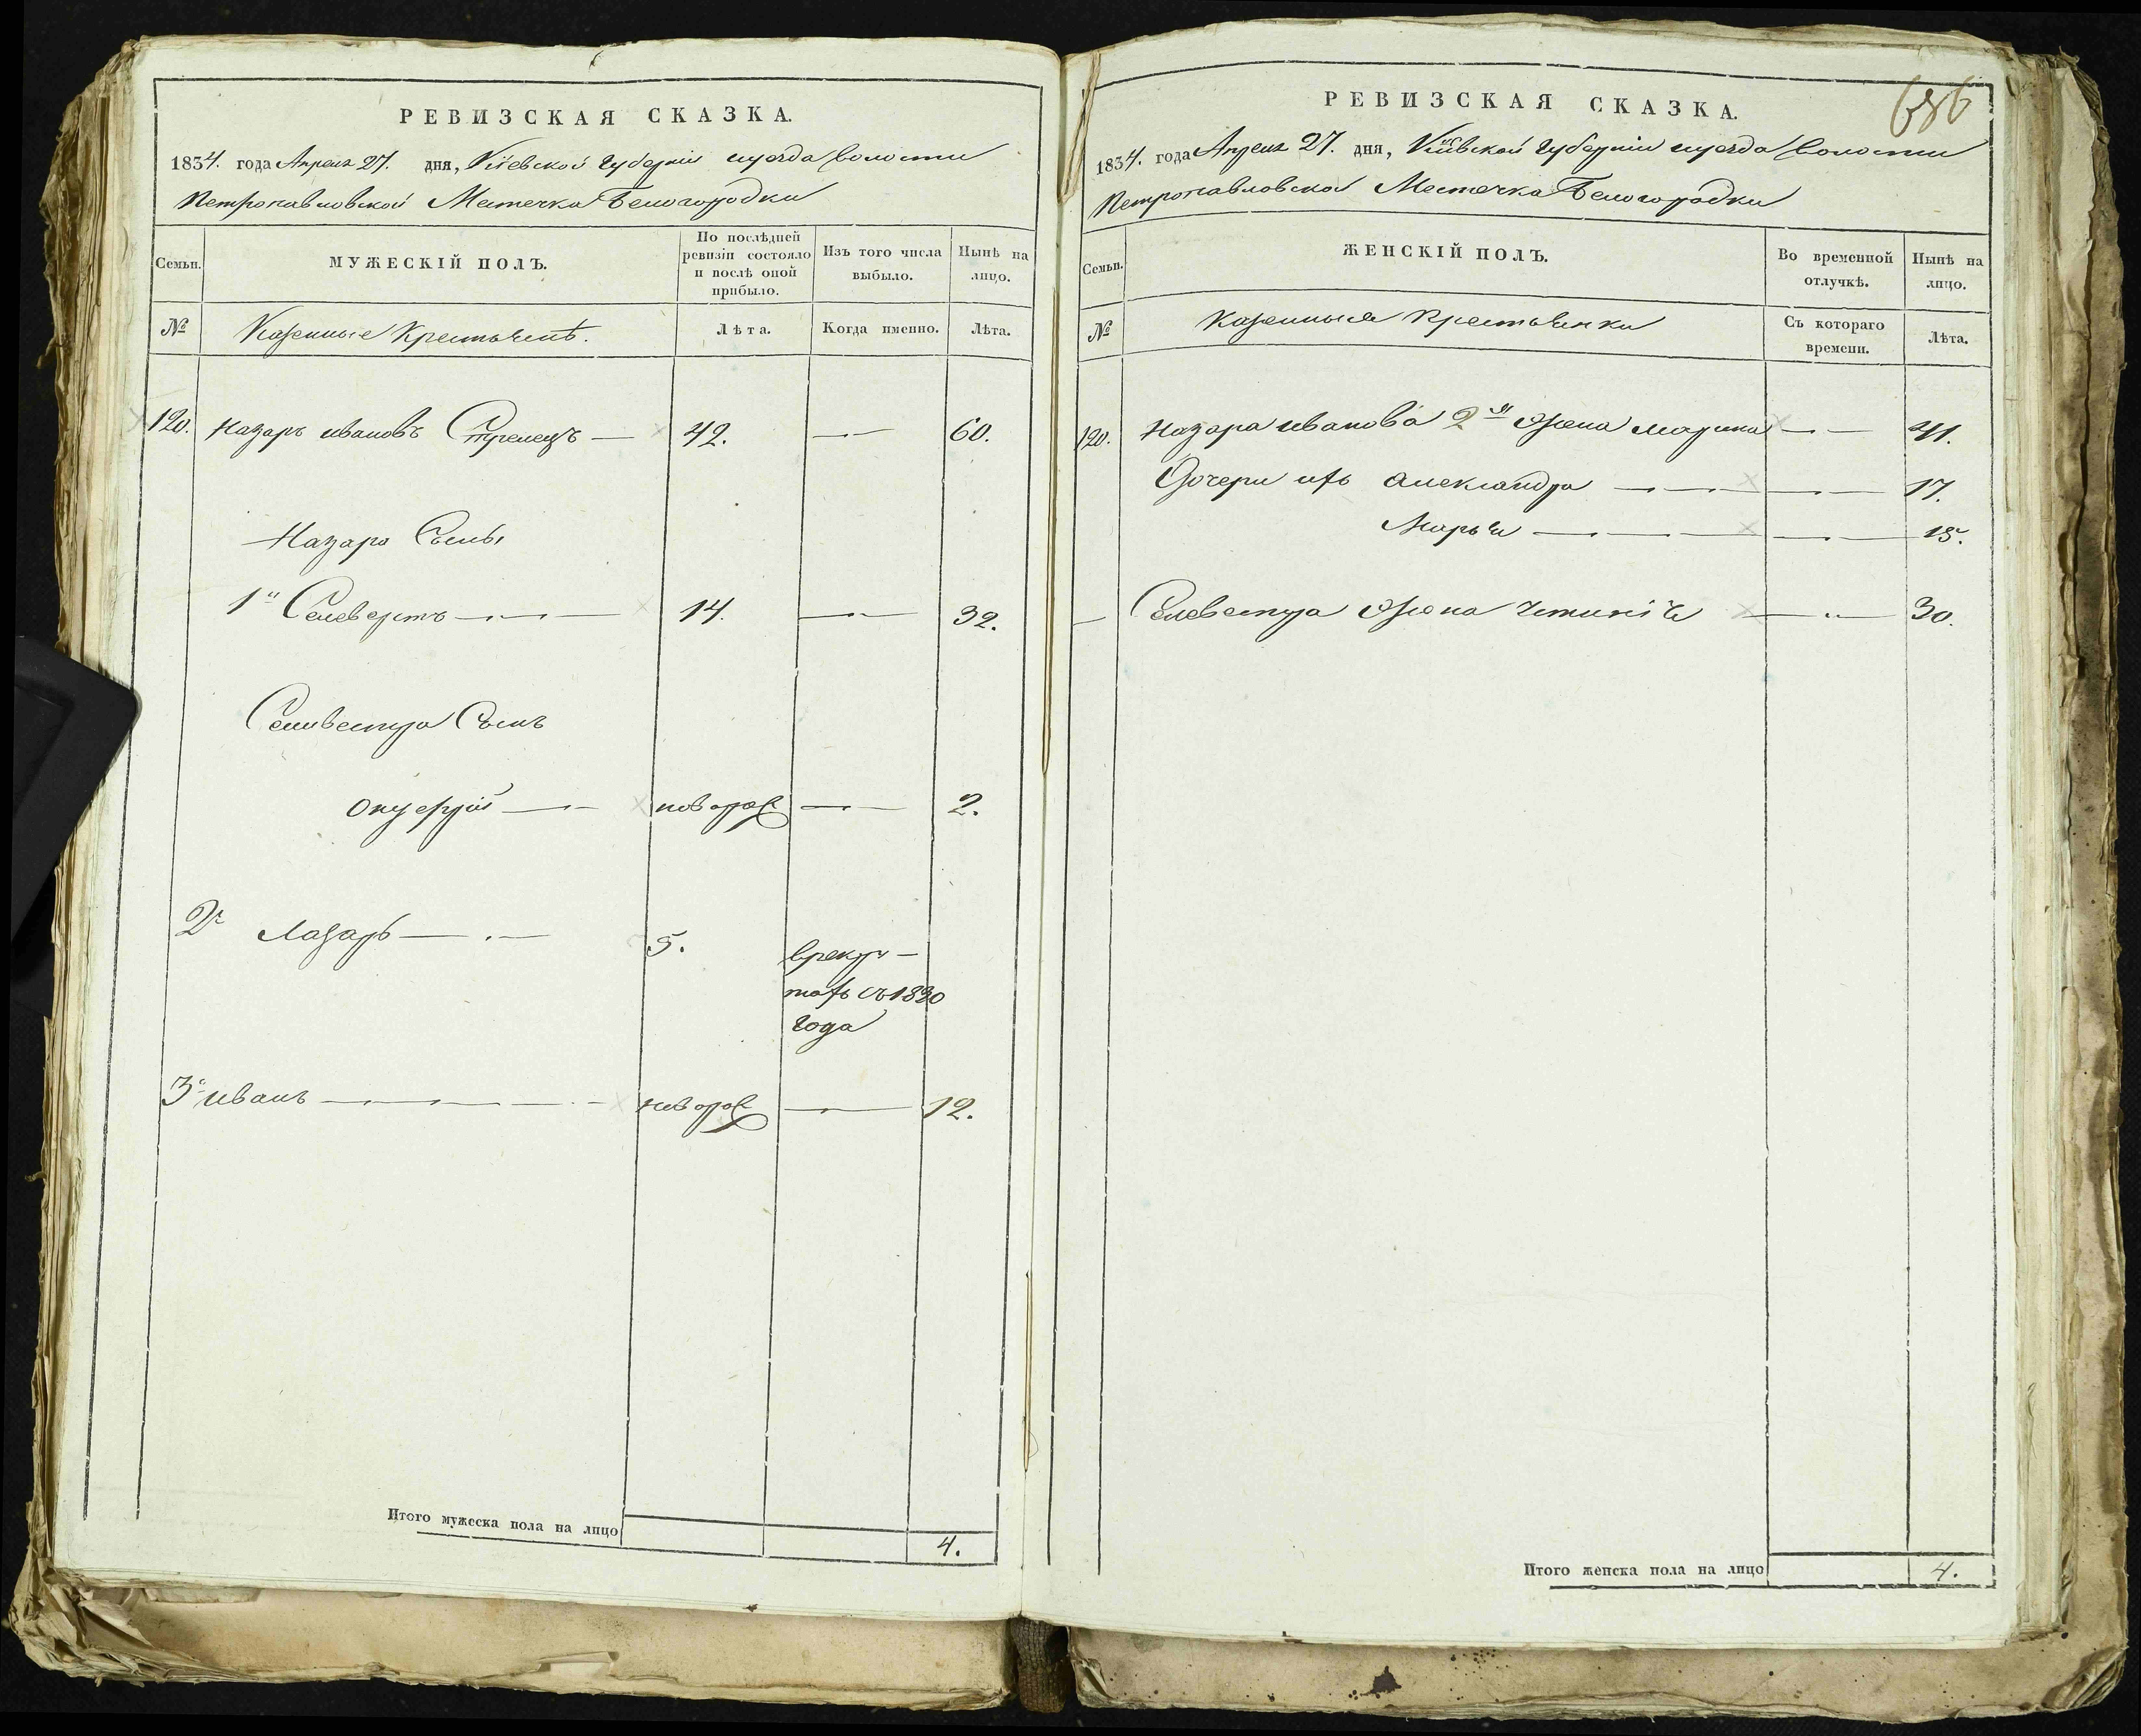 РЕВИЗСКАЯ СКАЗКА.
1834. года Апреля 27. дня, Кіевской Губерніи иуезда Волости
Петропавловской Местечка Белогородки
Семьи.
МУЖЕСКІЙ ПОЛЪ.
По послѣдней ревизіи состояло и послѣ оной прибыло.
Изъ того числа выбыло.
Нынѣ на лицо.
№
Казенные Крестьянѣ.
Лѣта.
Когда именно.
Лѣта.
120. Назаръ ивановъ Стрелецъ — 42. — 60.
Назара Сыны
1й Селеверстъ — 14. — 32.
Селивестра Сынъ
Онуфрій — новорож — 2.
2й Лазарь — 5. врекру-
тахъ съ 1830
года
3й иванъ — новорож — 12.
Итого мужеска пола на лицо 4.
686
РЕВИЗСКАЯ СКАЗКА.
1834. года Апреля 27. дня, Кіевской Губерніи иуезда Волости
Петропавловской Местечка Белогородки
Семьи.
ЖЕНСКІЙ ПОЛЪ.
Во временной отлучкѣ.
Нынѣ на лицо.
№
Казенныя Крестьянки
Съ котораго времени.
Лѣта.
120. Назара иванова 2я жена марина — 41.
Дочери ихъ александра — 17.
Марья — 15.
Селевестра жена — 30.
Итого женска пола на лицо 4.